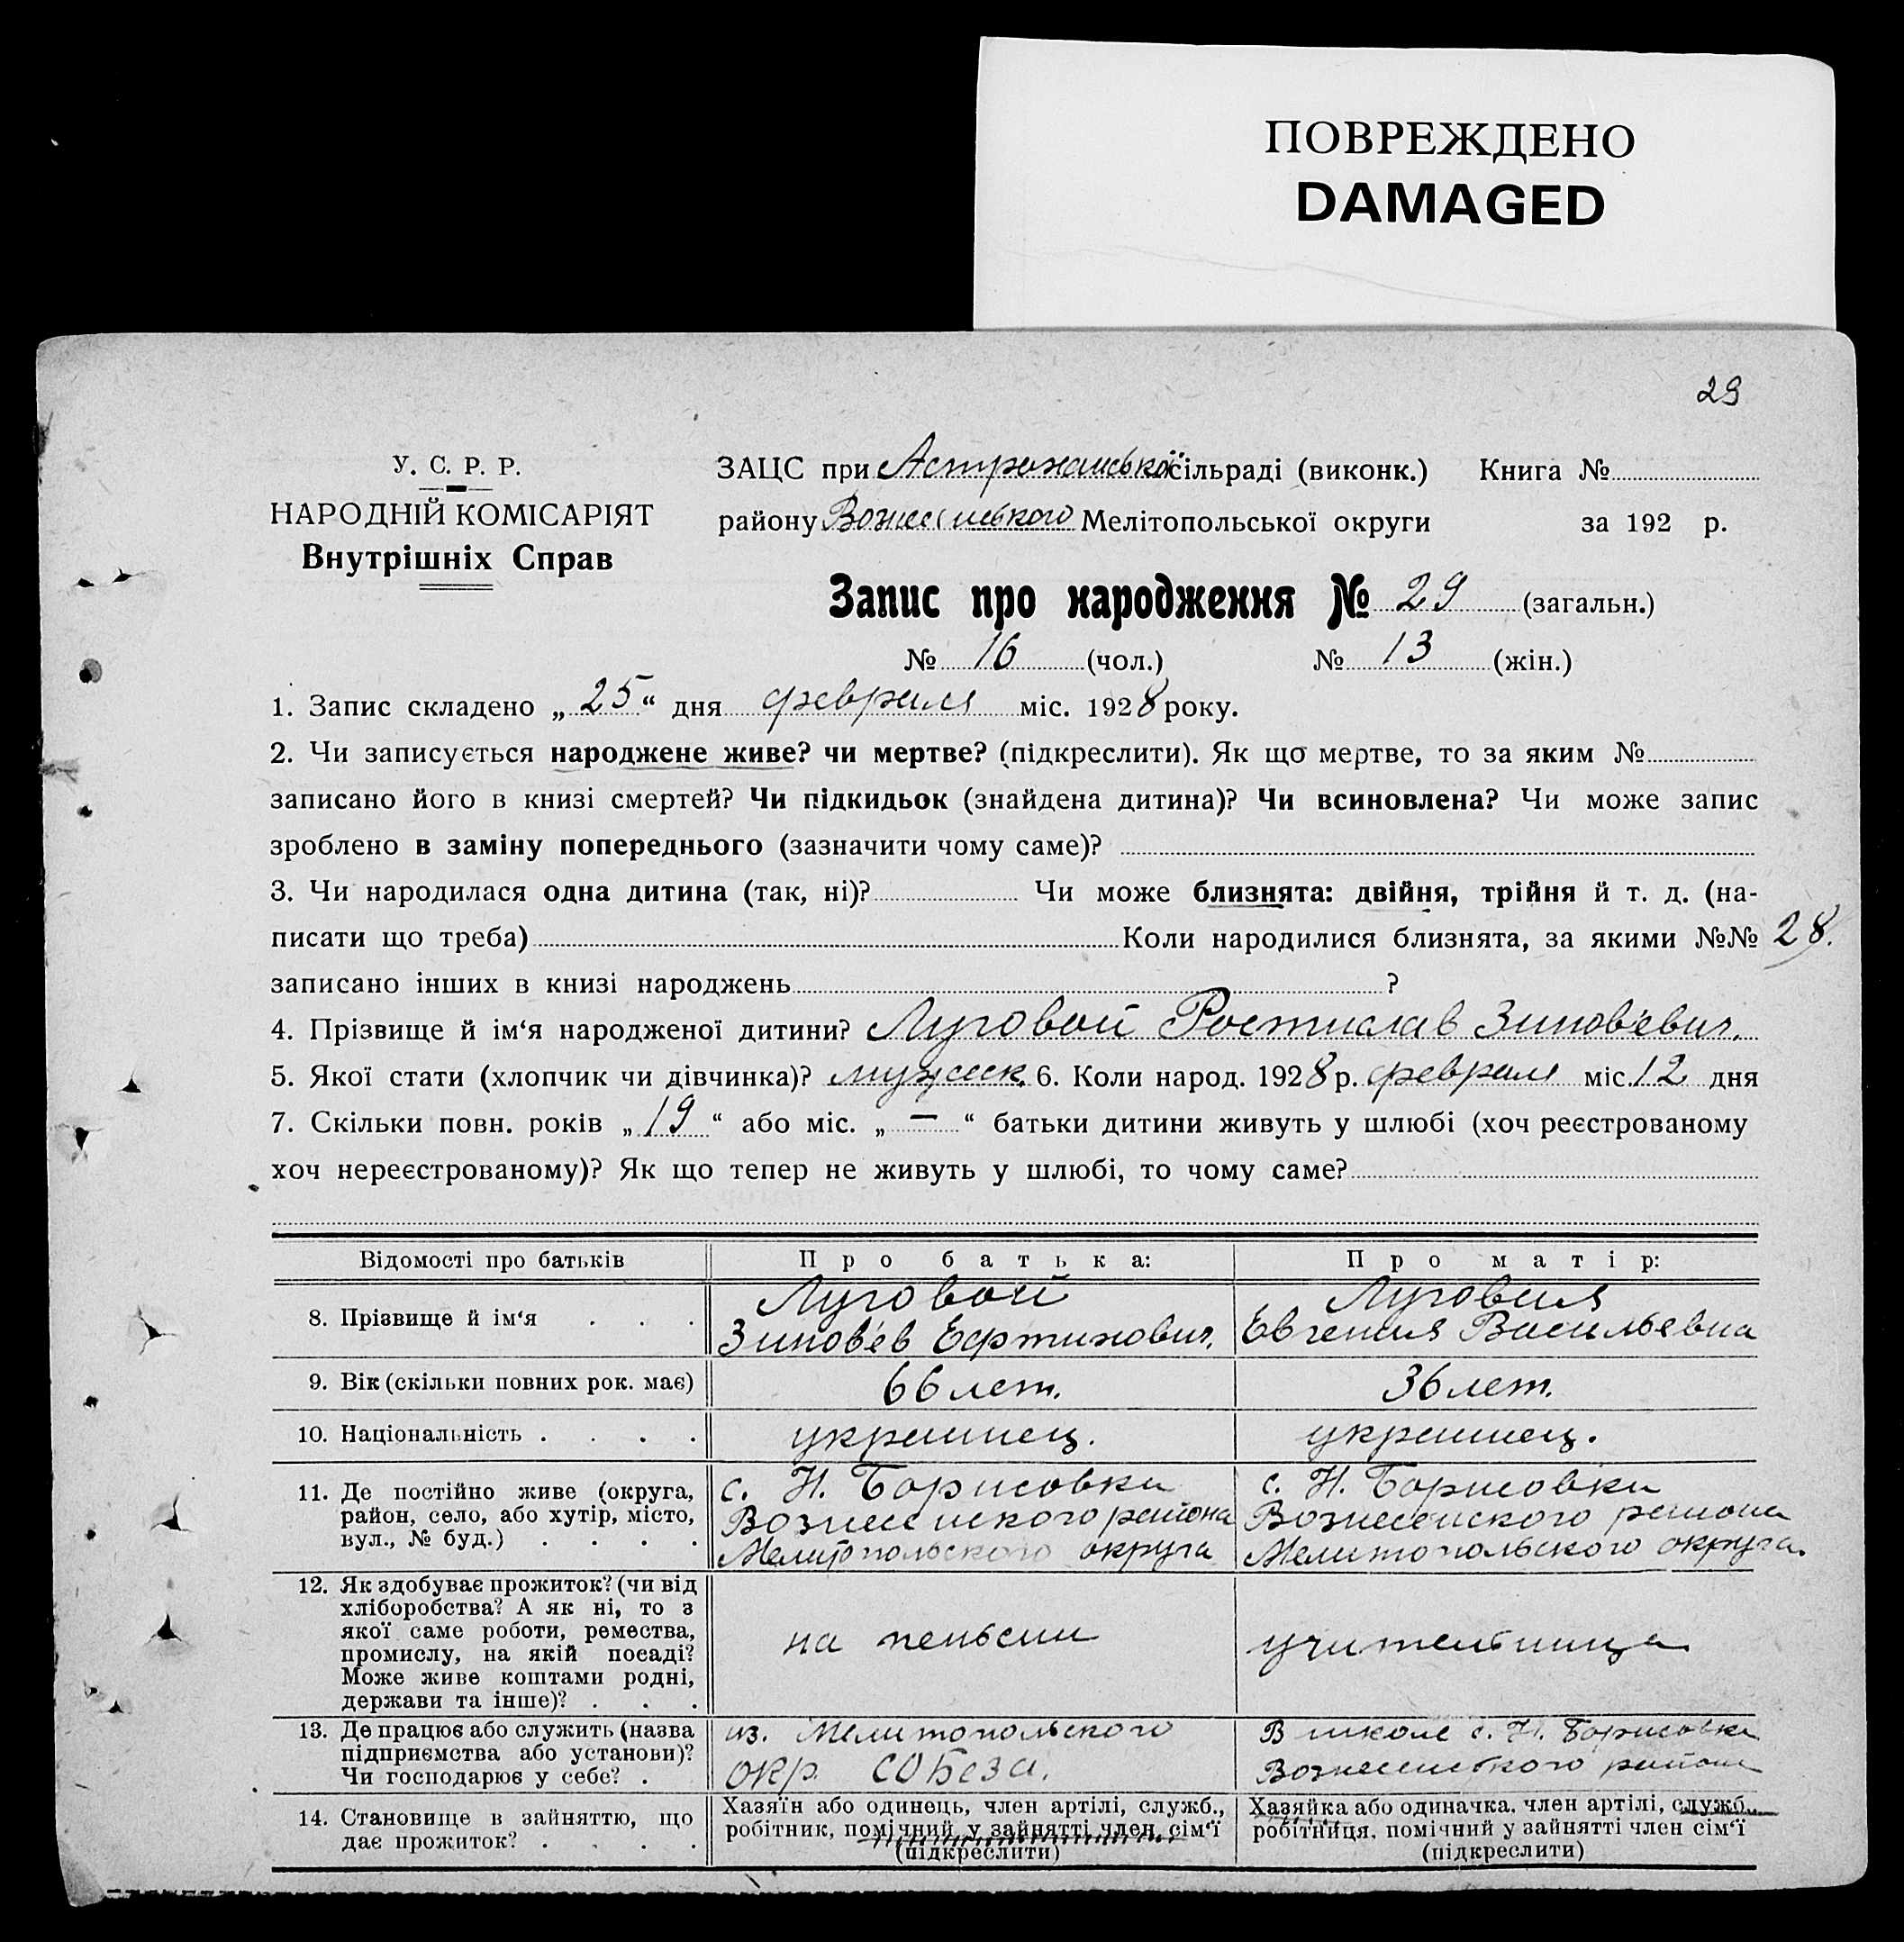 ПОВРЕЖДЕНО
DAMAGED
29
У. С. Р. Р.
НАРОДНІЙ КОМІСАРІЯТ
Внутрішніх Справ
ЗАЦС при Астраханській сільраді (виконк.) Книга №
району Вознесенського Мелітопольської округи за 192 р.
Запис про народження № 29 (загальн.)
№ 16 (чол.) № 13 (жін.)
1. Запис складено „25“ дня февраля міс. 1928 року.
2. Чи записується народжене живе? чи мертве? (підкреслити). Як що мертве, то за яким №
записано його в книзі смертей? Чи підкидьок (знайдена дитина)? Чи всиновлена? Чи може запис
зроблено в заміну попереднього (зазначити чому саме)?
3. Чи народилася одна дитина (так, ні)? Чи може близнята: двійня, трійня й т. д. (на-
писати що треба) Коли народилися близнята, за якими №№ 28.
записано інших в книзі народжень ?
4. Прізвище й ім‘я народженої дитини? Луговой Ростислав Зиновьевич.
5. Якої стати (хлопчик чи дівчинка)? мужеск. 6. Коли народ. 1928 р. февраля міс. 12 дня
7. Скільки повн. років „19“ або міс. „—“ батьки дитини живуть у шлюбі (хоч реєстрованому
хоч нереєстрованому)? Як що тепер не живуть у шлюбі, то чому саме?
Відомості про батьків Про батька: Про матір:
8. Прізвище й ім‘я . . . Луговой Зиновьев Луговая
Евгения Васильевна
9. Вік (скільки повних рок. має) 66 лет. 36 лет.
10. Національність . . . . украинец. украинец.
11. Де постійно живе (округа, район, село, або хутір, місто, вул., № буд.) . . . .
с. Н. Борисовка
Вознесенского района
Мелитопольского округа
с. Н. Борисовка
Вознесенского района
Мелитопольского округа.
12. Як здобуває прожиток? (чи від
хліборобства? А як ні, то з
якої саме роботи, ремества,
промислу, на якій посаді?
Може живе коштами родні,
держави та інше)? . . .
на пенсии
учительница
13. Де працює або служить (назва
підприємства або установи)?
Чи господарює у себе? .
из. Мелитопольского
окр. СОБеза.
В школе с. Н. Борисовка
Вознесенского района
14. Становище в зайняттю, що
дає прожиток? . . . .
Хазяїн або одинець, член артілі, служб.,
робітник, помічний у зайнятті член сім‘ї
(підкреслити)
Хазяйка або одиначка, член артілі, служб.,
робітниця, помічний у зайнятті член сім‘ї
(підкреслити)